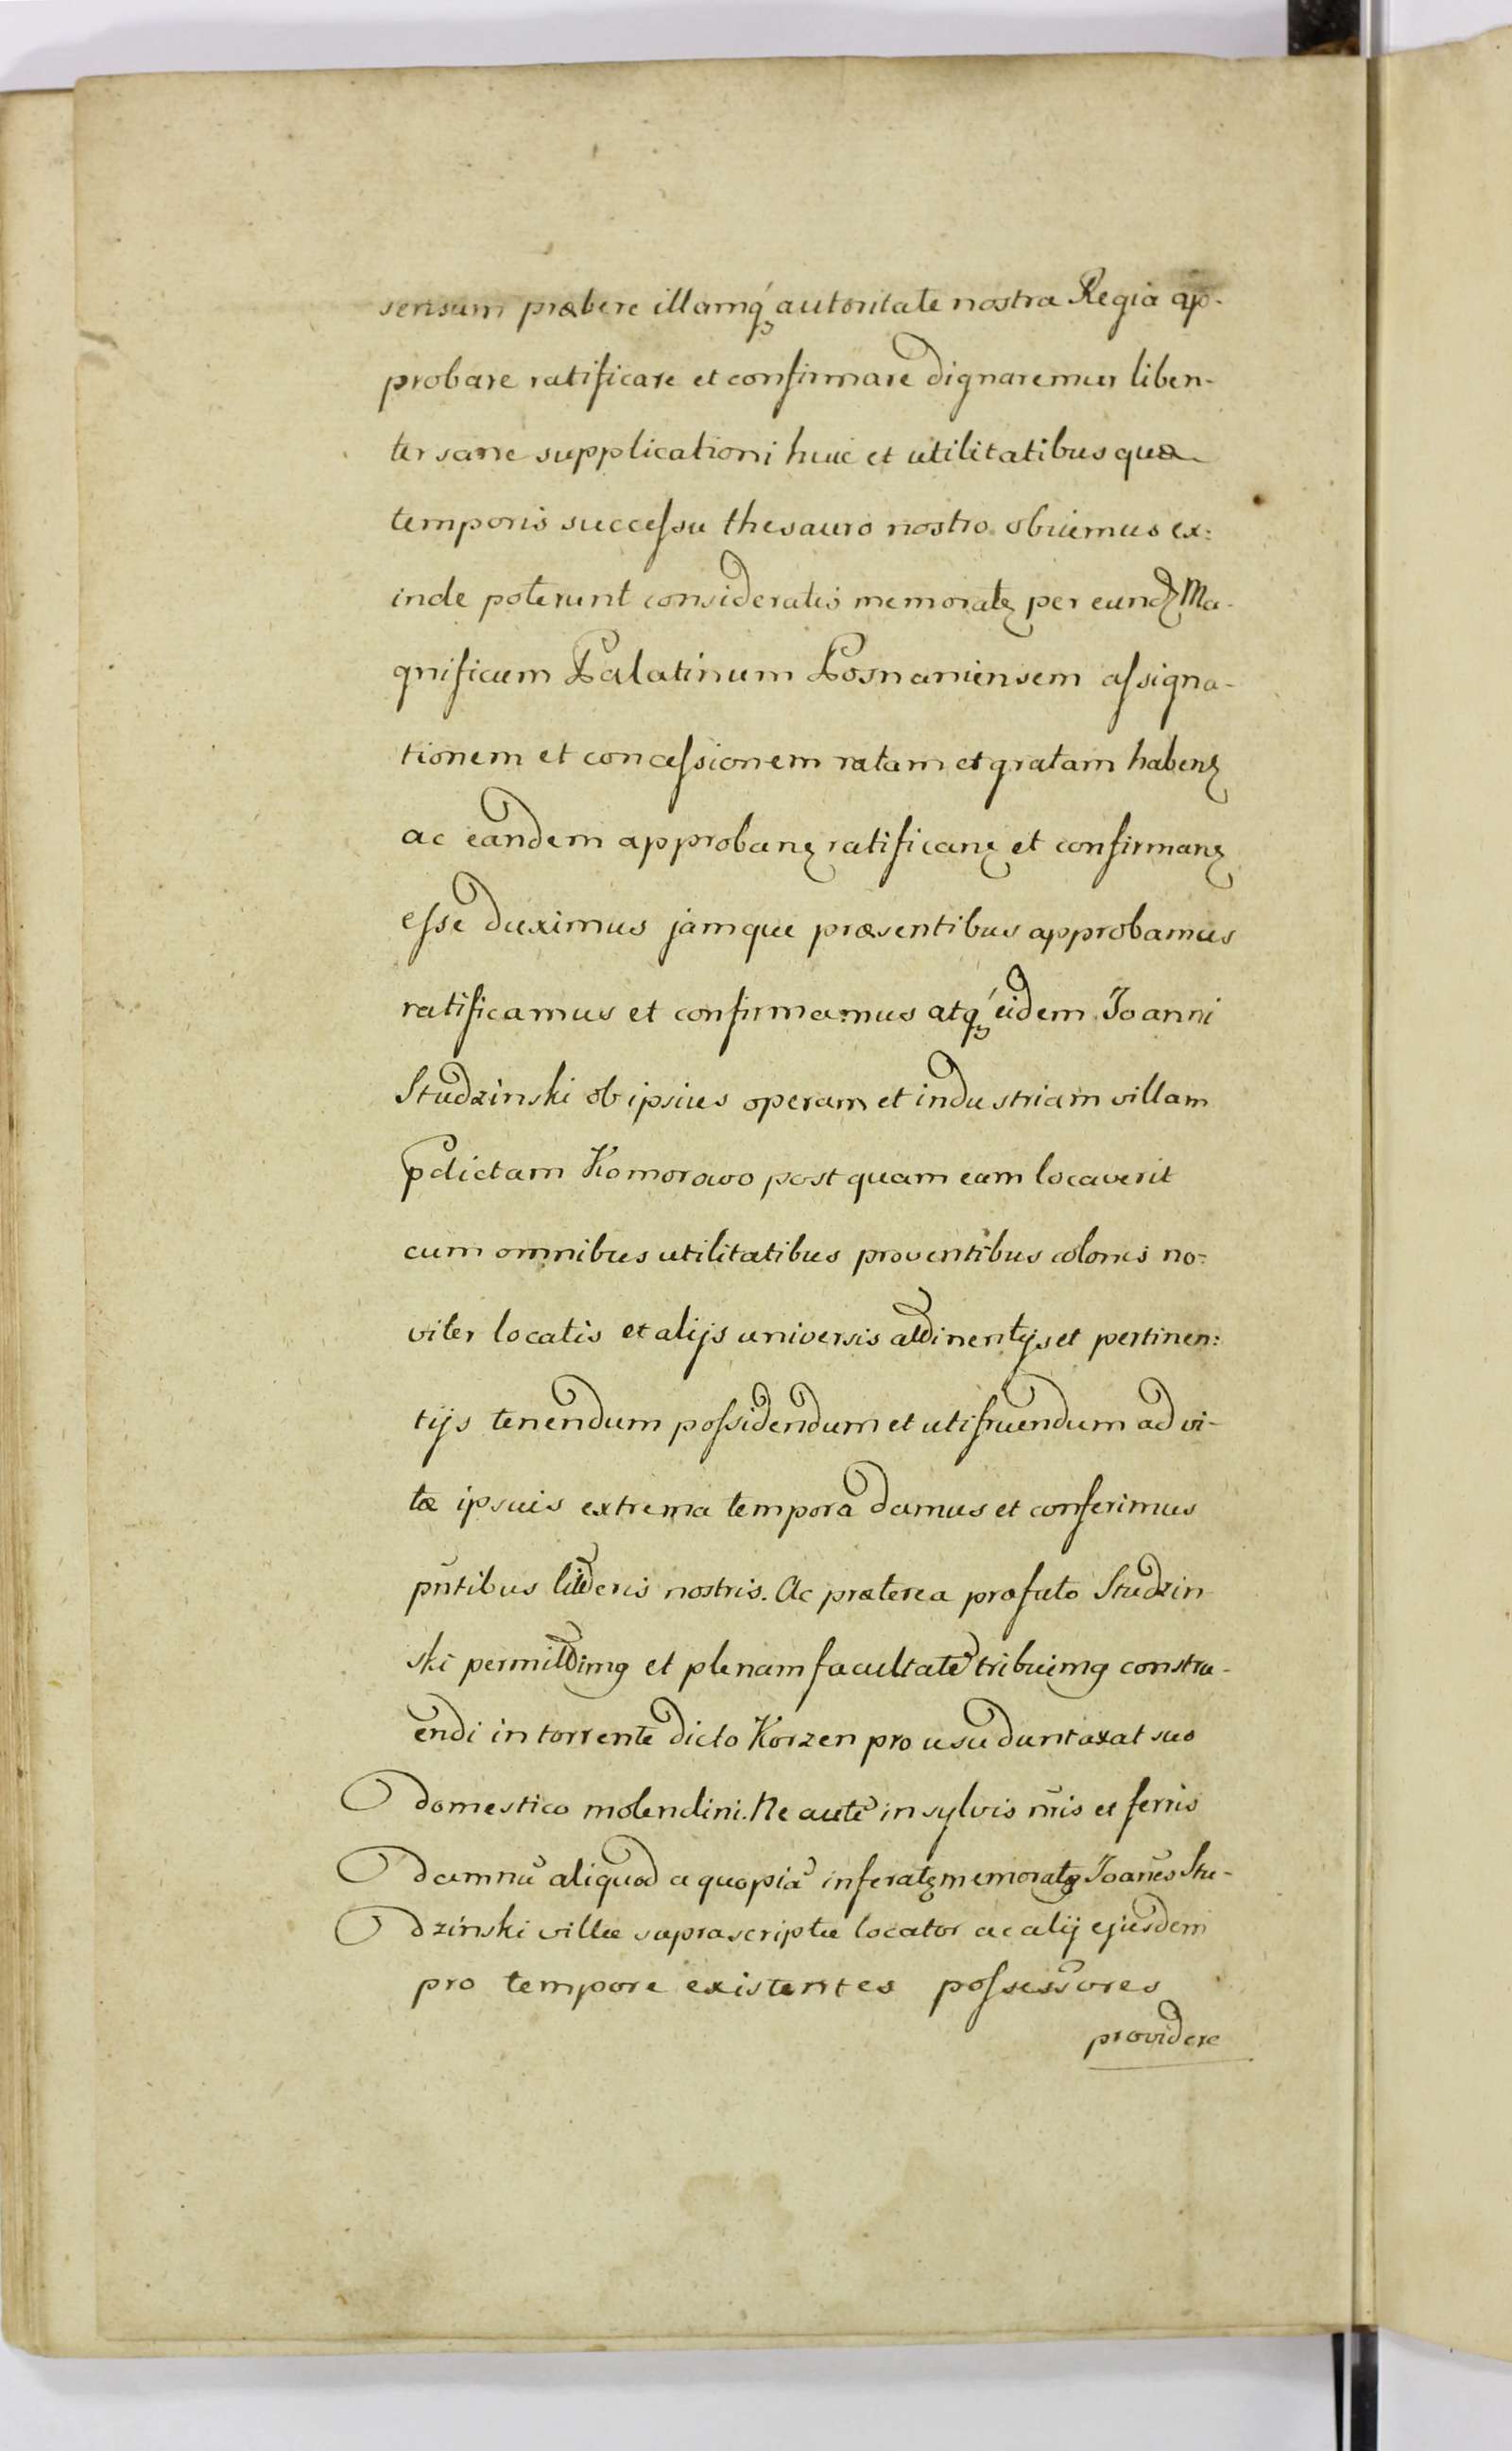 sensum præbere illamq́ꝫ autoritate nostra Regia ap-
probare ratificare et confirmare dignaremur liben-
ter sane supplicationi huic et utilitatibus quæ
temporis succeſsu thesauro nostro obuemus ex:
inde poterunt consideratis memoratꝫ per eundꝫ Ma-
gnificum Palatinum Posnaniensem aſsigna-
tionem et conceſsionem ratam et gratam habenꝫ
ac eandem approbanꝫ ratificanꝫ et confirmanꝫ
eſse duximus jamque præsentibus approbamus
ratificamus et confirmamus atq́ꝫ eidem Joanni
Studzinski ob ipsius operam et industriam villam
pdictam Komorowo postquam eam locaverit
cum omnibus utilitatibus proventibus colonis no-
viter locatis et alijs universis attinentijs et pertinen:
tijs tenendum poſsidendum et utifruendum ad vi-
tæ ipsuis extrema tempora damus et conferimus
pñtibus litteris nostris. Ac præterea præfato Studzin
ski permittimg et plenam facultatẽ tribuimg constru-
endi in torrente dicto Korzen pro usu duntaxat suo
domestico molendini. Ne autẽ in sylvis nr̃is et ferris
damnũ aliquod a quopiã inferatꝫ memoratꝫ Joañes Stu-
dzinski villæ suprascriptæ locator ac alij ejusdem
pro tempore existentes poſsessores
providere